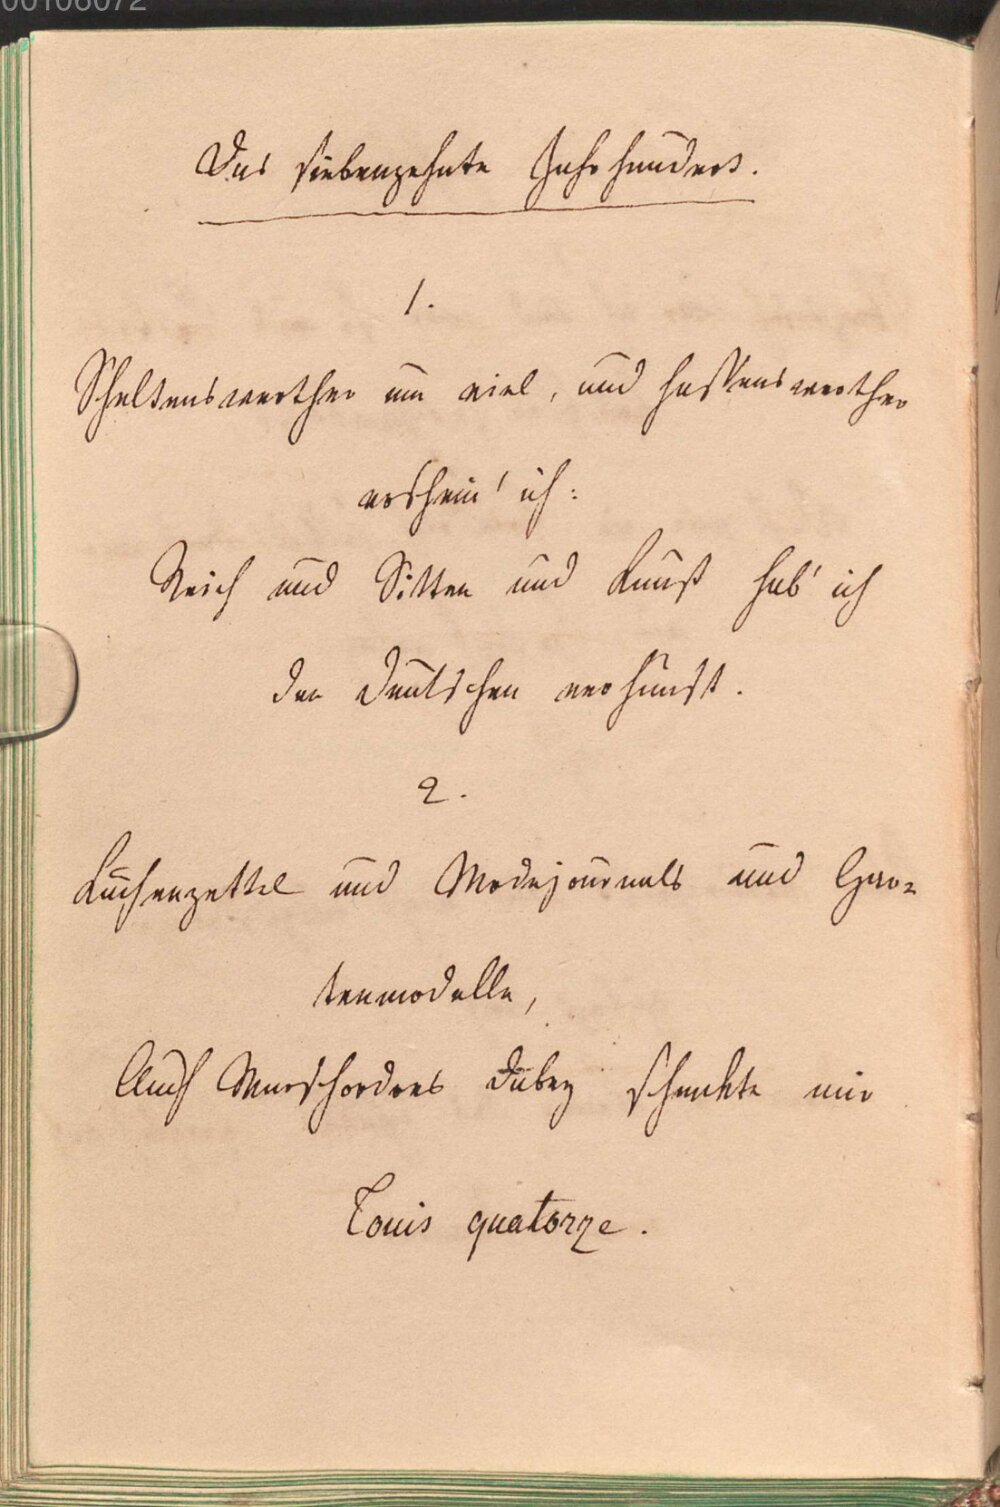 00106072
Das siebenzehnte Jahrhundert.
1.
Scheltenswerther um viel, und hassenswerther
erschein' ich:
Reich und Sitten und Kunst hab' ich
den Deutschen verhunst.
2.
Küchenzettel und Modejournals und Gar-
tenmodelle,
Auch Marschordres dabey schenkte mir
Louis quatorze.